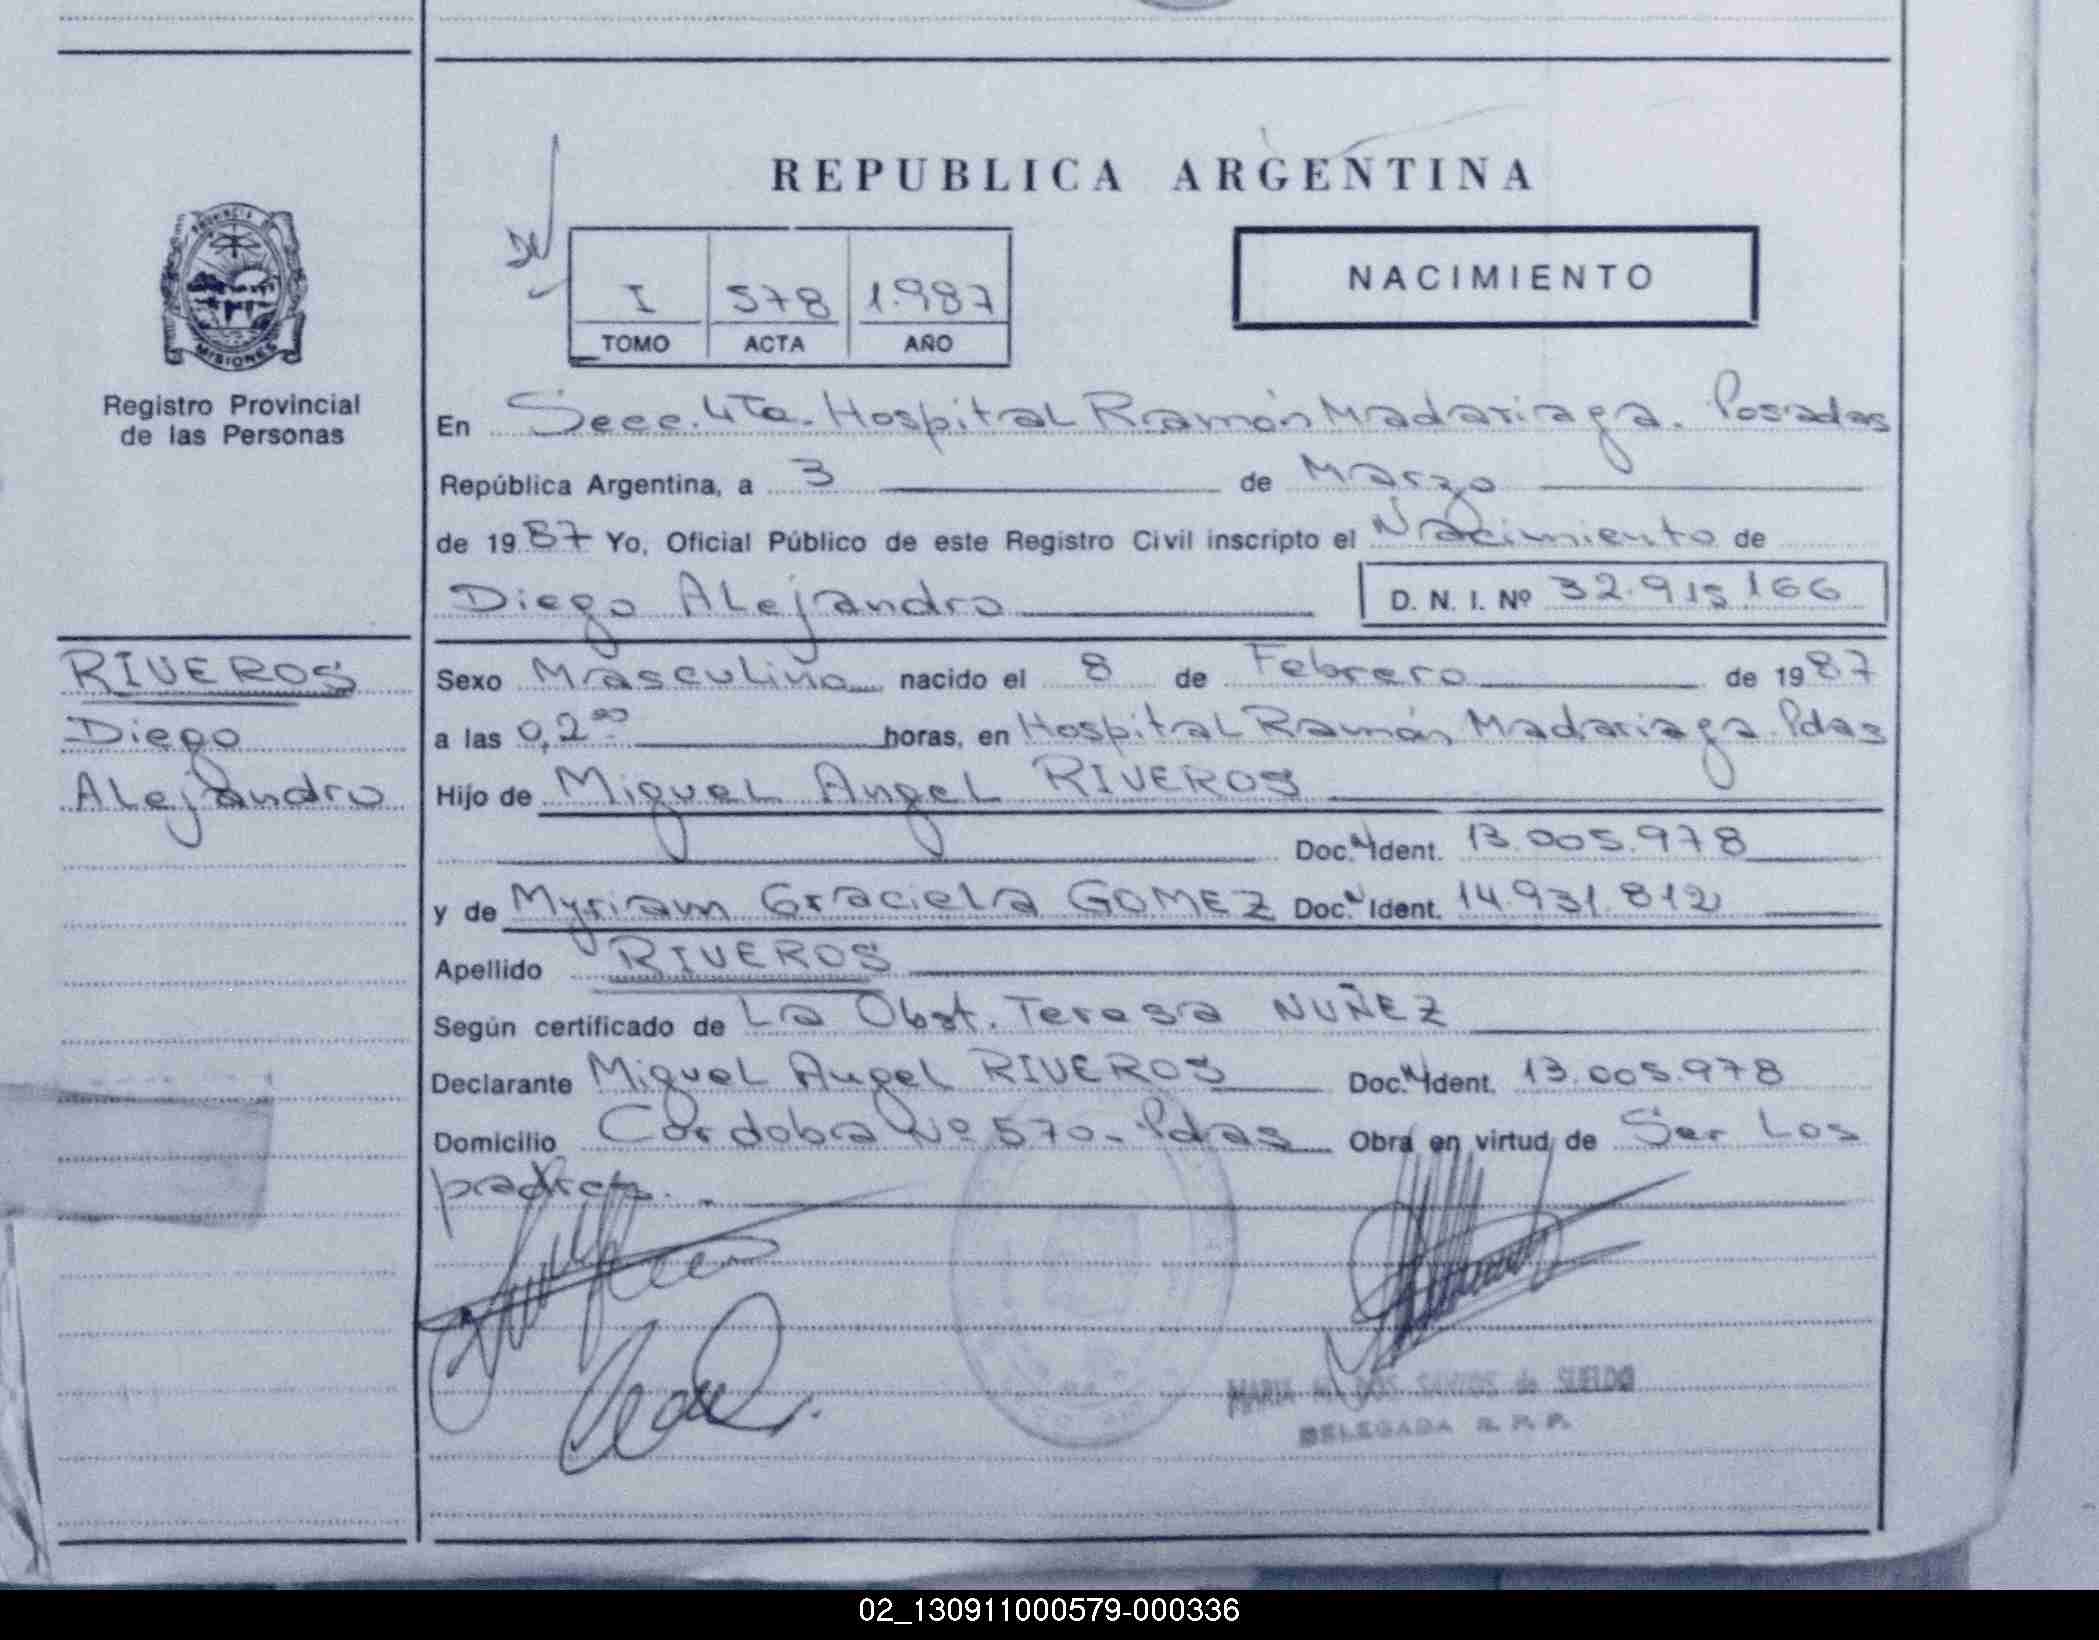 REPUBLICA ARGENTINA
NACIMIENTO
I 578 1.987
TOMO ACTA AÑO
PROVINCIA DE
MISIONES
Registro Provincial
de las Personas
En Secc. 4Ta. Hospital Ramón Madariaga. Posadas
República Argentina, a 3 de Marzo
de 1987 Yo, Oficial Público de este Registro Civil inscripto el Nacimiento de
Diego Alejandro D. N. I. Nº 32.915.166
RIVEROS
Diego
Alejandro
Sexo Masculino nacido el 8 de Febrero de 1987
a las 0,2⁰⁰ horas, en Hospital Ramón Madariaga. Pdas
Hijo de Miguel Angel RIVEROS
Doc. N Ident. 13.005.978
y de Myriam Graciela GOMEZ Doc. N Ident. 14.931.812
Apellido RIVEROS
Según certificado de La Obst. Teresa NUÑEZ
Declarante Miguel Angel RIVEROS Doc. N Ident. 13.005.978
Domicilio Córdoba Nº 570 - Pdas Obra en virtud de Ser Los
padres. -
MARIA DOS SANTOS de SUELDO
DELEGADA R. P. P.
02_130911000579-000336